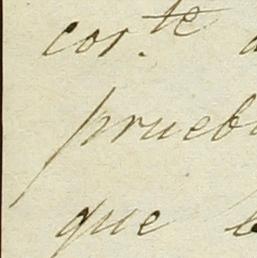 cor.te
prueb
que